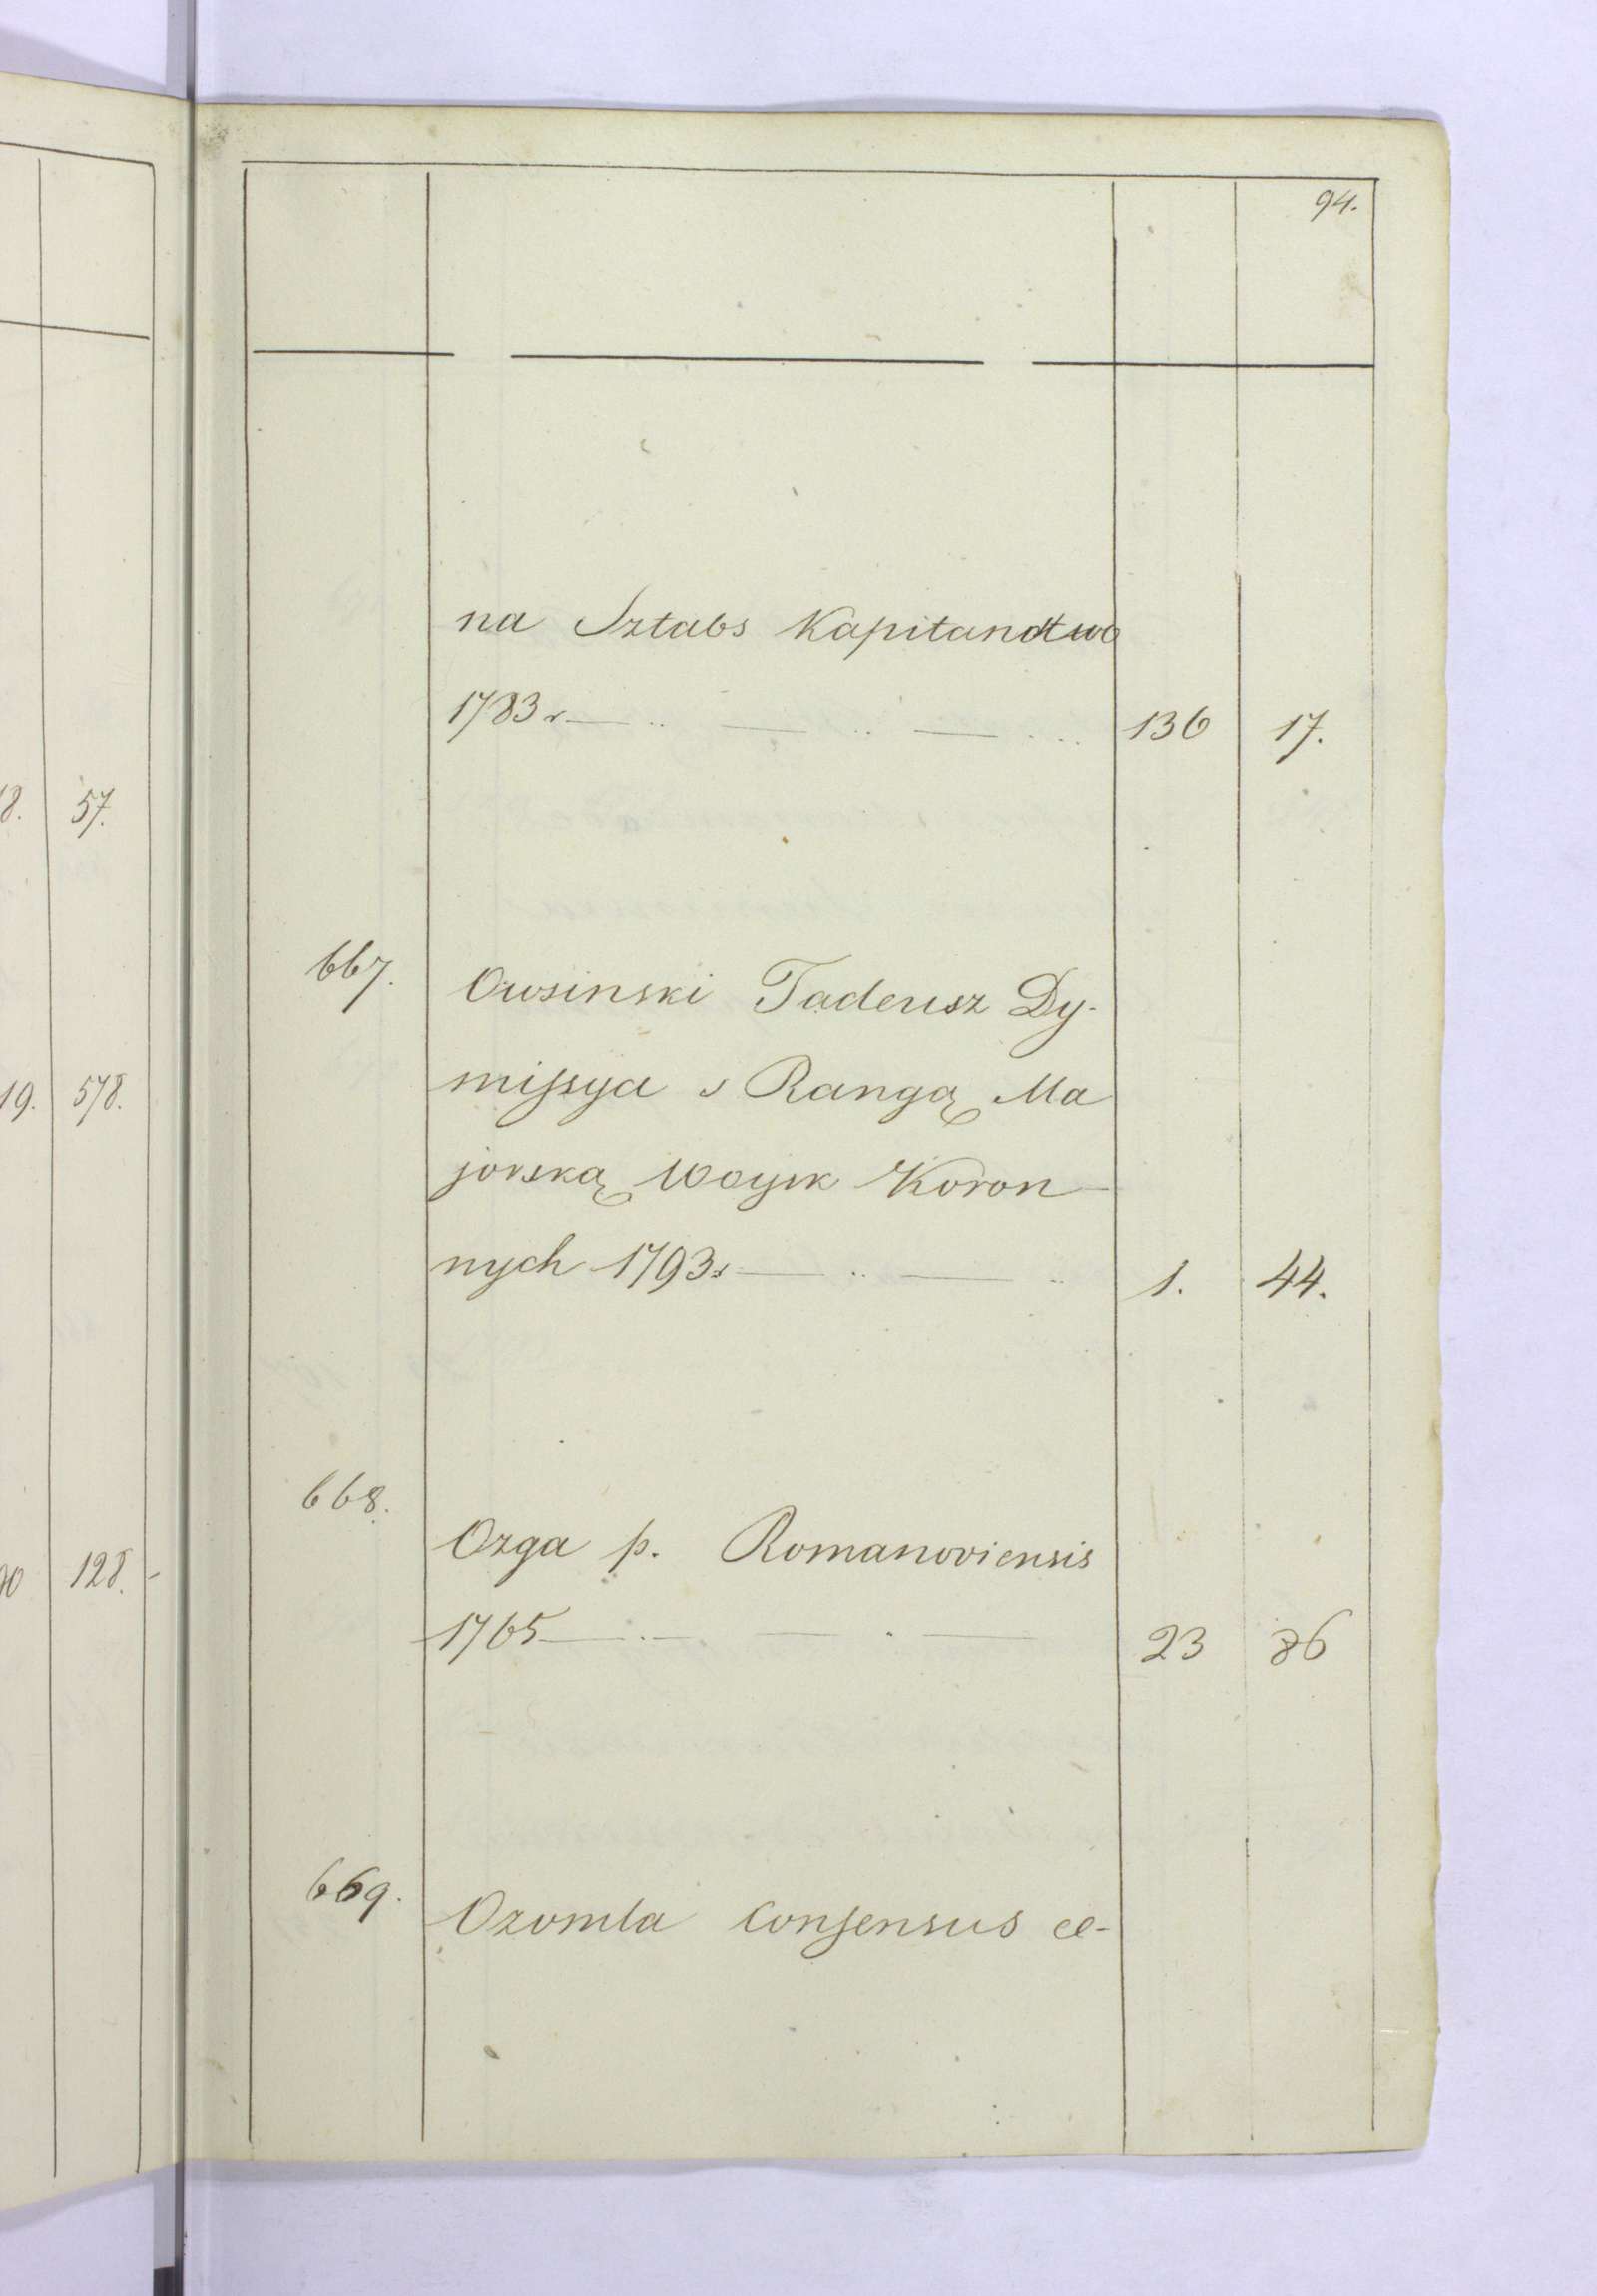 94.
na Sztabs Kapitanstwo
1783 r — .. — .. — ... 136 17.
57.
667. Owsinski Tadeusz Dy-
missya s Rangą Ma
19. 578.
jorską Woysk Koron-
nych 1793 — .. — .. 1. 44.
668.
Ozga p. Romanoviensis
128.
1765 — . — . — . — 23 86
669. Ozomla Consensus ce-